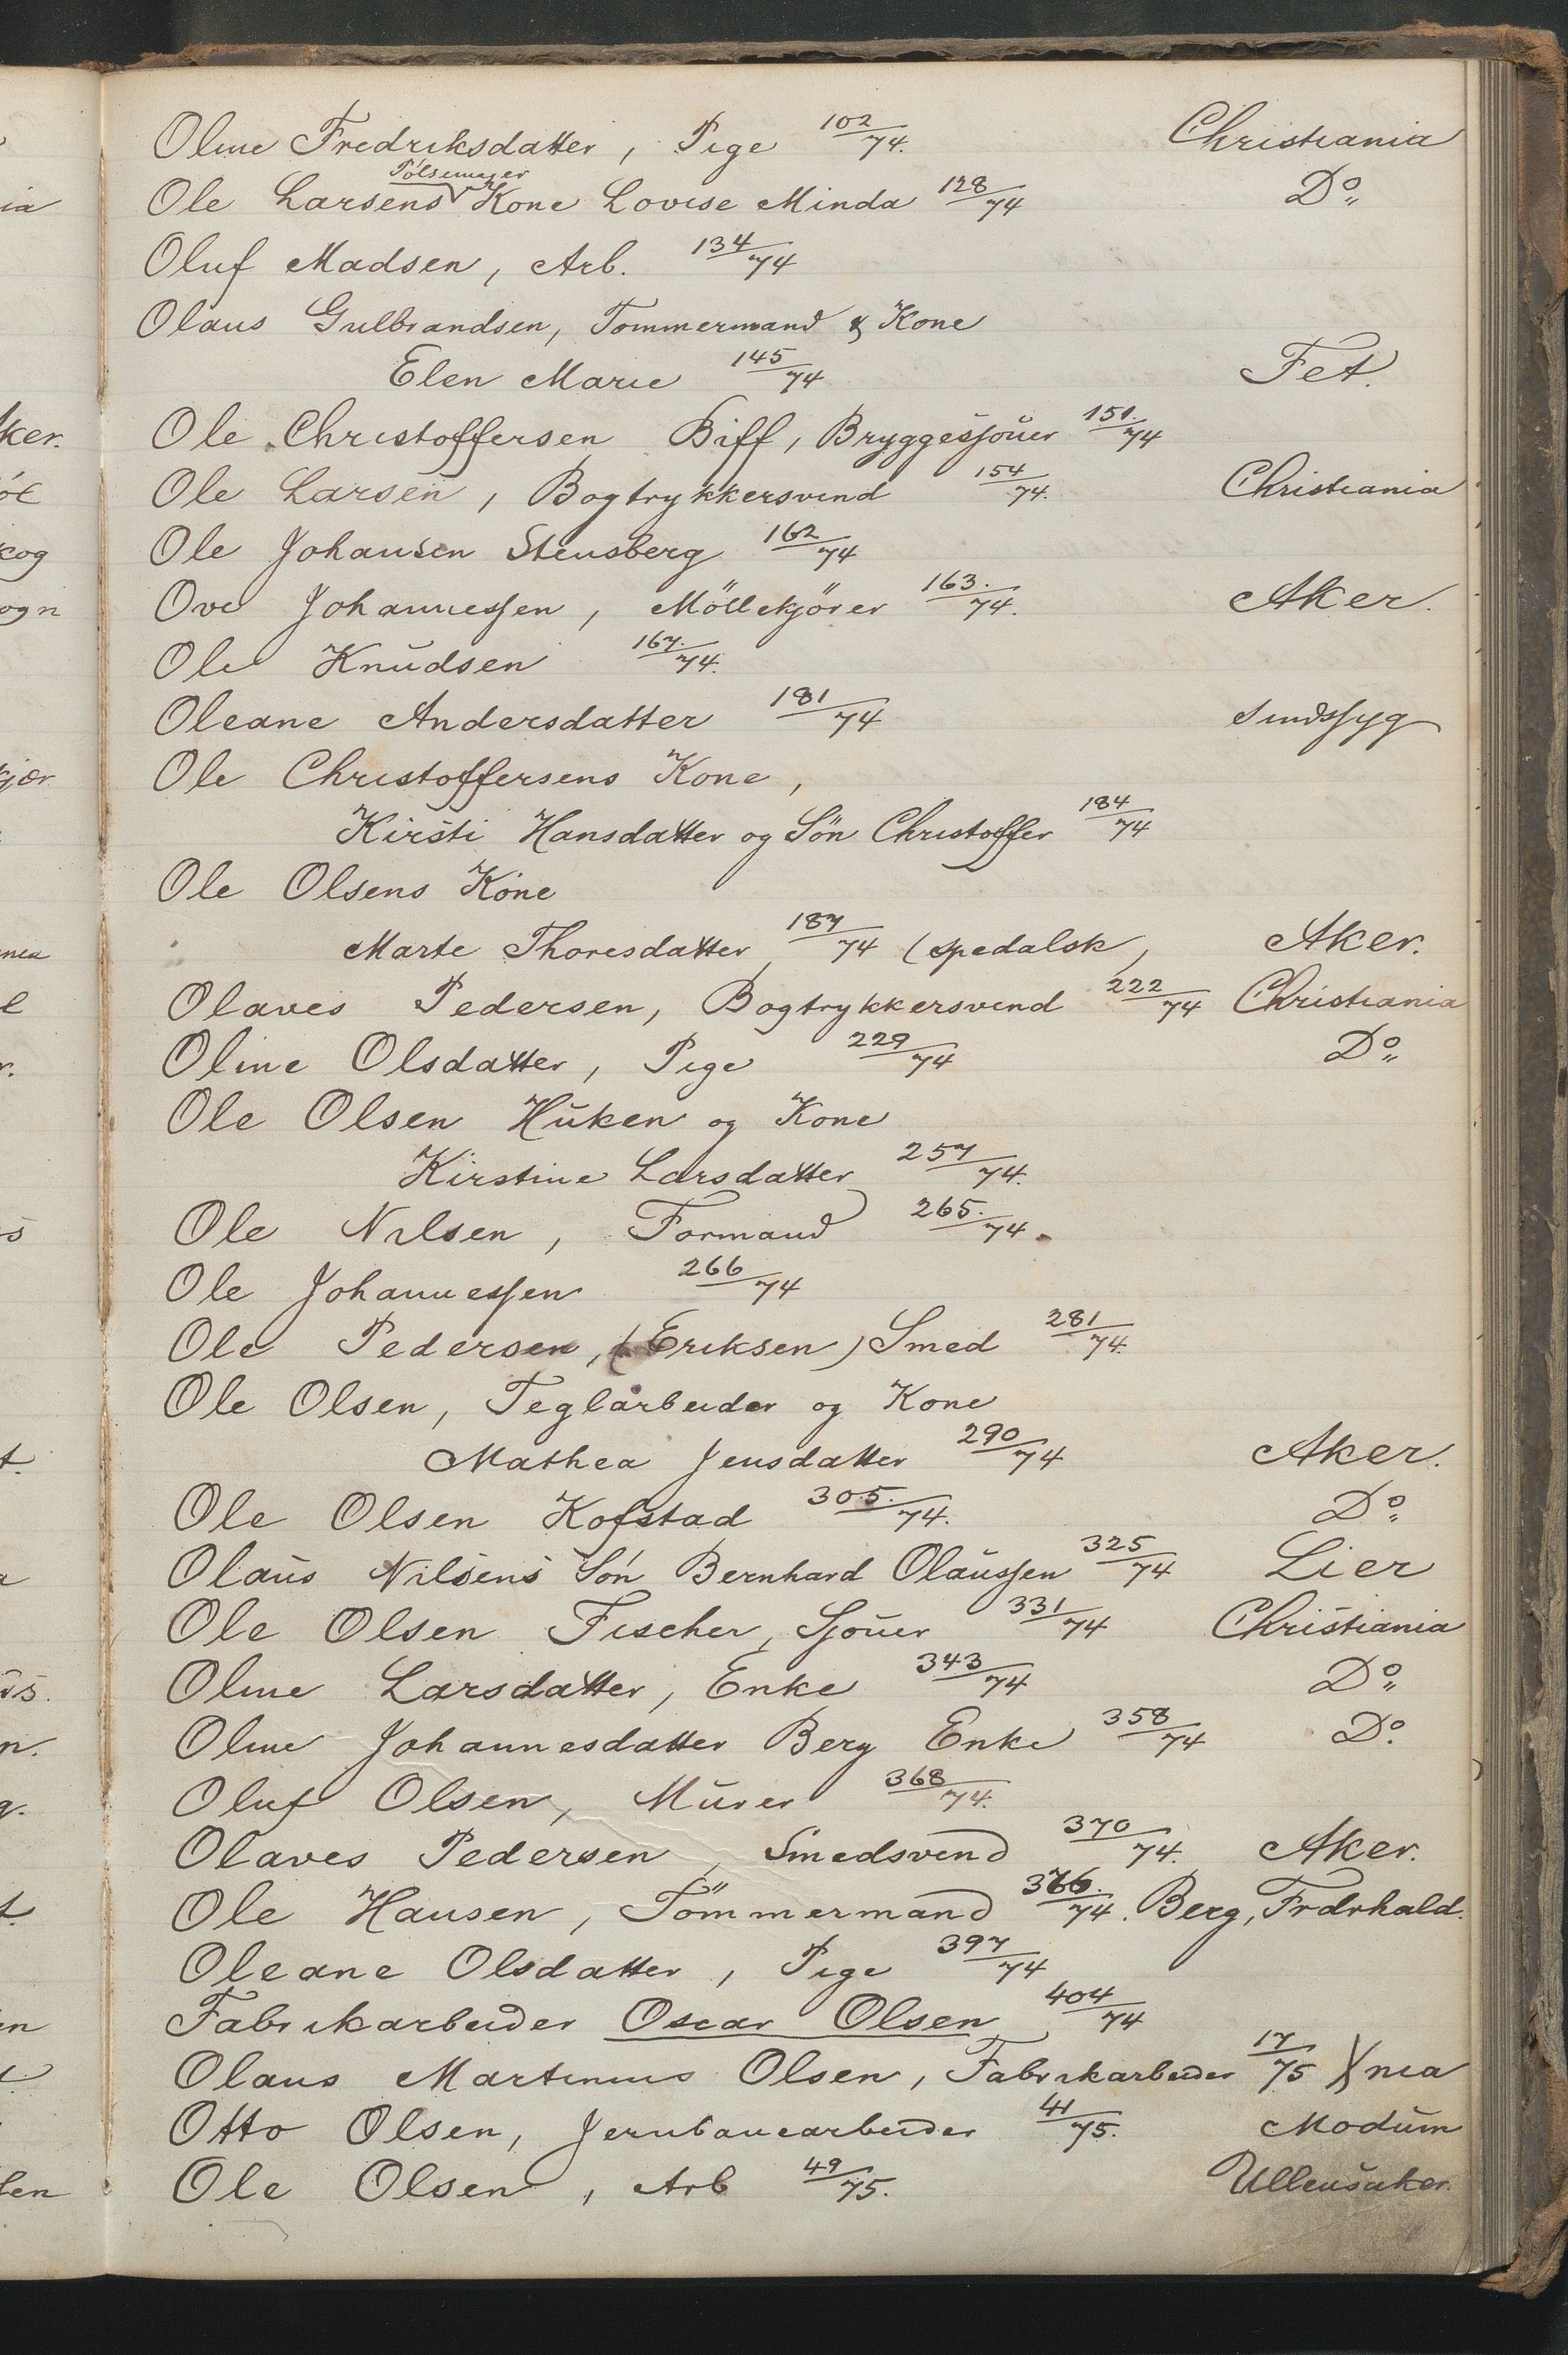 Oline Fredriksdatter, Pige 102/74. Christiania
Pölsemager
Ole Larsens Kone Lovise Minda 128/74 Do„
Oluf Madsen, Arb. 134/74
Olaus Gulbrandsen, Tömmermand & Kone
Elen Marie 145/74 Fet.
Ole Christoffersen Biff, Bryggesjouer 151/74
Ole Larsen, Bogtrykkersvend 154/74. Christiania
Ole Johansen Stensberg 162/74
Ove Johannessen, Möllekjörer 163./74. Aker.
Ole Knudsen 167./74.
Oleane Andersdatter 181/74 sindssyg
Ole Christoffersens Kone,
Kirsti Hansdatter og Sön Christoffer 184/74
Ole Olsens Kone
Marte Thoresdatter, 187/74 (spedalsk, Aker.
Olaves Pedersen, Bogtrykkersvend 222/74 Christiania
Oline Olsdatter, Pige 229/74 Do„
Ole Olsen Huken og Kone
Kirstine Larsdatter 257/74.
Ole Nilsen, Formand 265./74.
Ole Johannessen 266/74
Ole Pedersen, (Eriksen) Smed 281/74.
Ole Olsen, Teglarbeider og Kone
Mathea Jensdatter 290/74 Aker.
Ole Olsen Kofstad 305./74. Do„
Olaus Nilsens Sön Bernhard Olaussen 325/74 Lier
Ole Olsen Fischer, Sjouer 331/74 Christiania
Oline Larsdatter, Enke 343/74 Do„
Oline Johannesdatter Berg Enke 358/74 Do.
Oluf Olsen, Murer 368/74.
Olaves Pedersen, Smedsvend 370/74. Aker.
Ole Hansen, Tömmermand 376./74. Berg, Frdrhald.
Oleane Olsdatter, Pige 397/74
Fabrikarbeider Oscar Olsen 404/74
Olaus Martinius Olsen, Fabrikarbeider 17/75 Xnia
Otto Olsen, Jernbanearbeider 41/75. Modum
Ole Olsen, Arb 49/75. Ullensaker.